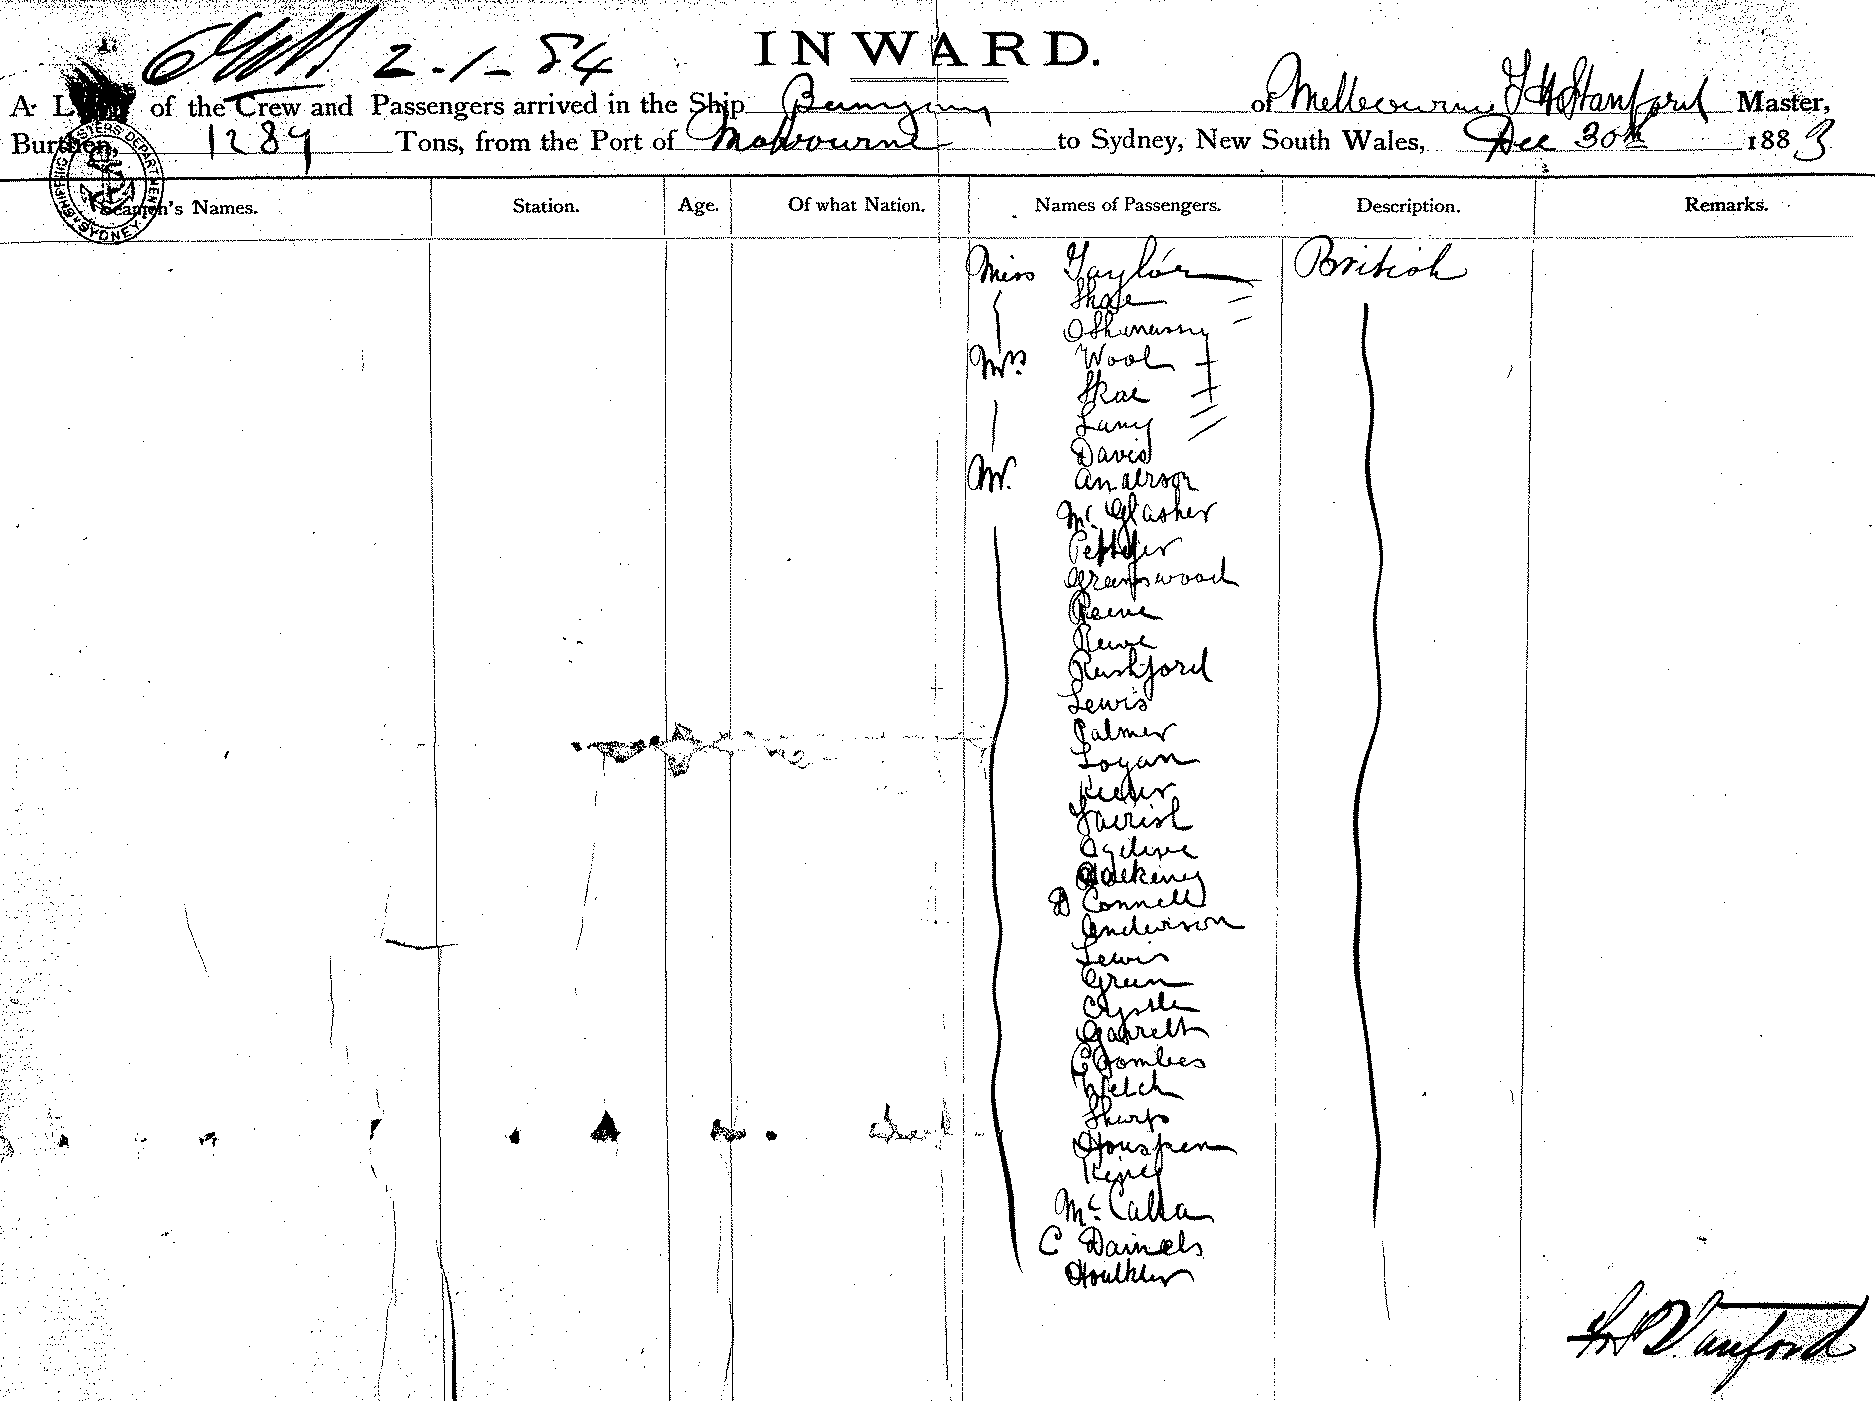 2-1-84
INWARD.
A List of the Crew and Passengers arrived in the Ship of Melbourne T H Stanford Master,
Burthen, 1289 Tons, from the Port of Melbourne to Sydney, New South Wales, Dec 30th 1883
SHIPPING MASTERS DEPARTMENT SYDNEY
Seamen's Names. Station. Age. Of what Nation. Names of Passengers. Description. Remarks.
Miss Taylor British
Skae
OShanassy
Mrs Wool
Skae
Lang
Davis
Mr. Anderson
Mc Glasher
Pettifer
Greenswood
Reeve
Rushford
Lewis
Palmer
Logan
Ogilvie
D Connell
Anderson
Lewis
Green
Garrett
Coombes
Welch
Sharp
King
Mc Calla
C Daniels